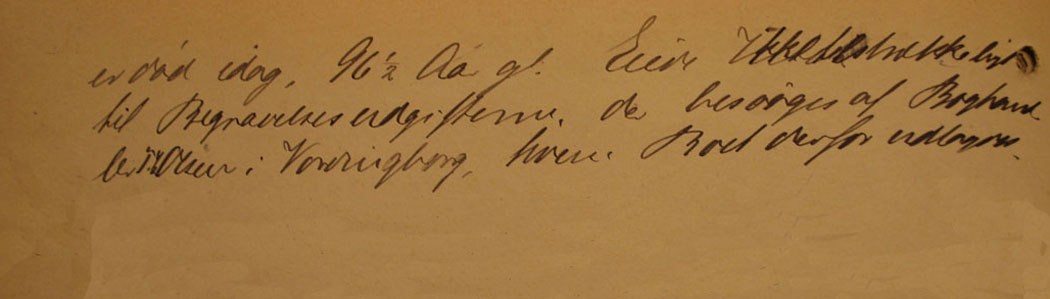 er død idag, 96½ Aar gl. Eiede Ikke tilstrækkeligt
til Begravelsesudgifterne, der besørges af Boghand
ler Olsen i Vordingborg, hvem Boet derfor udlægges.